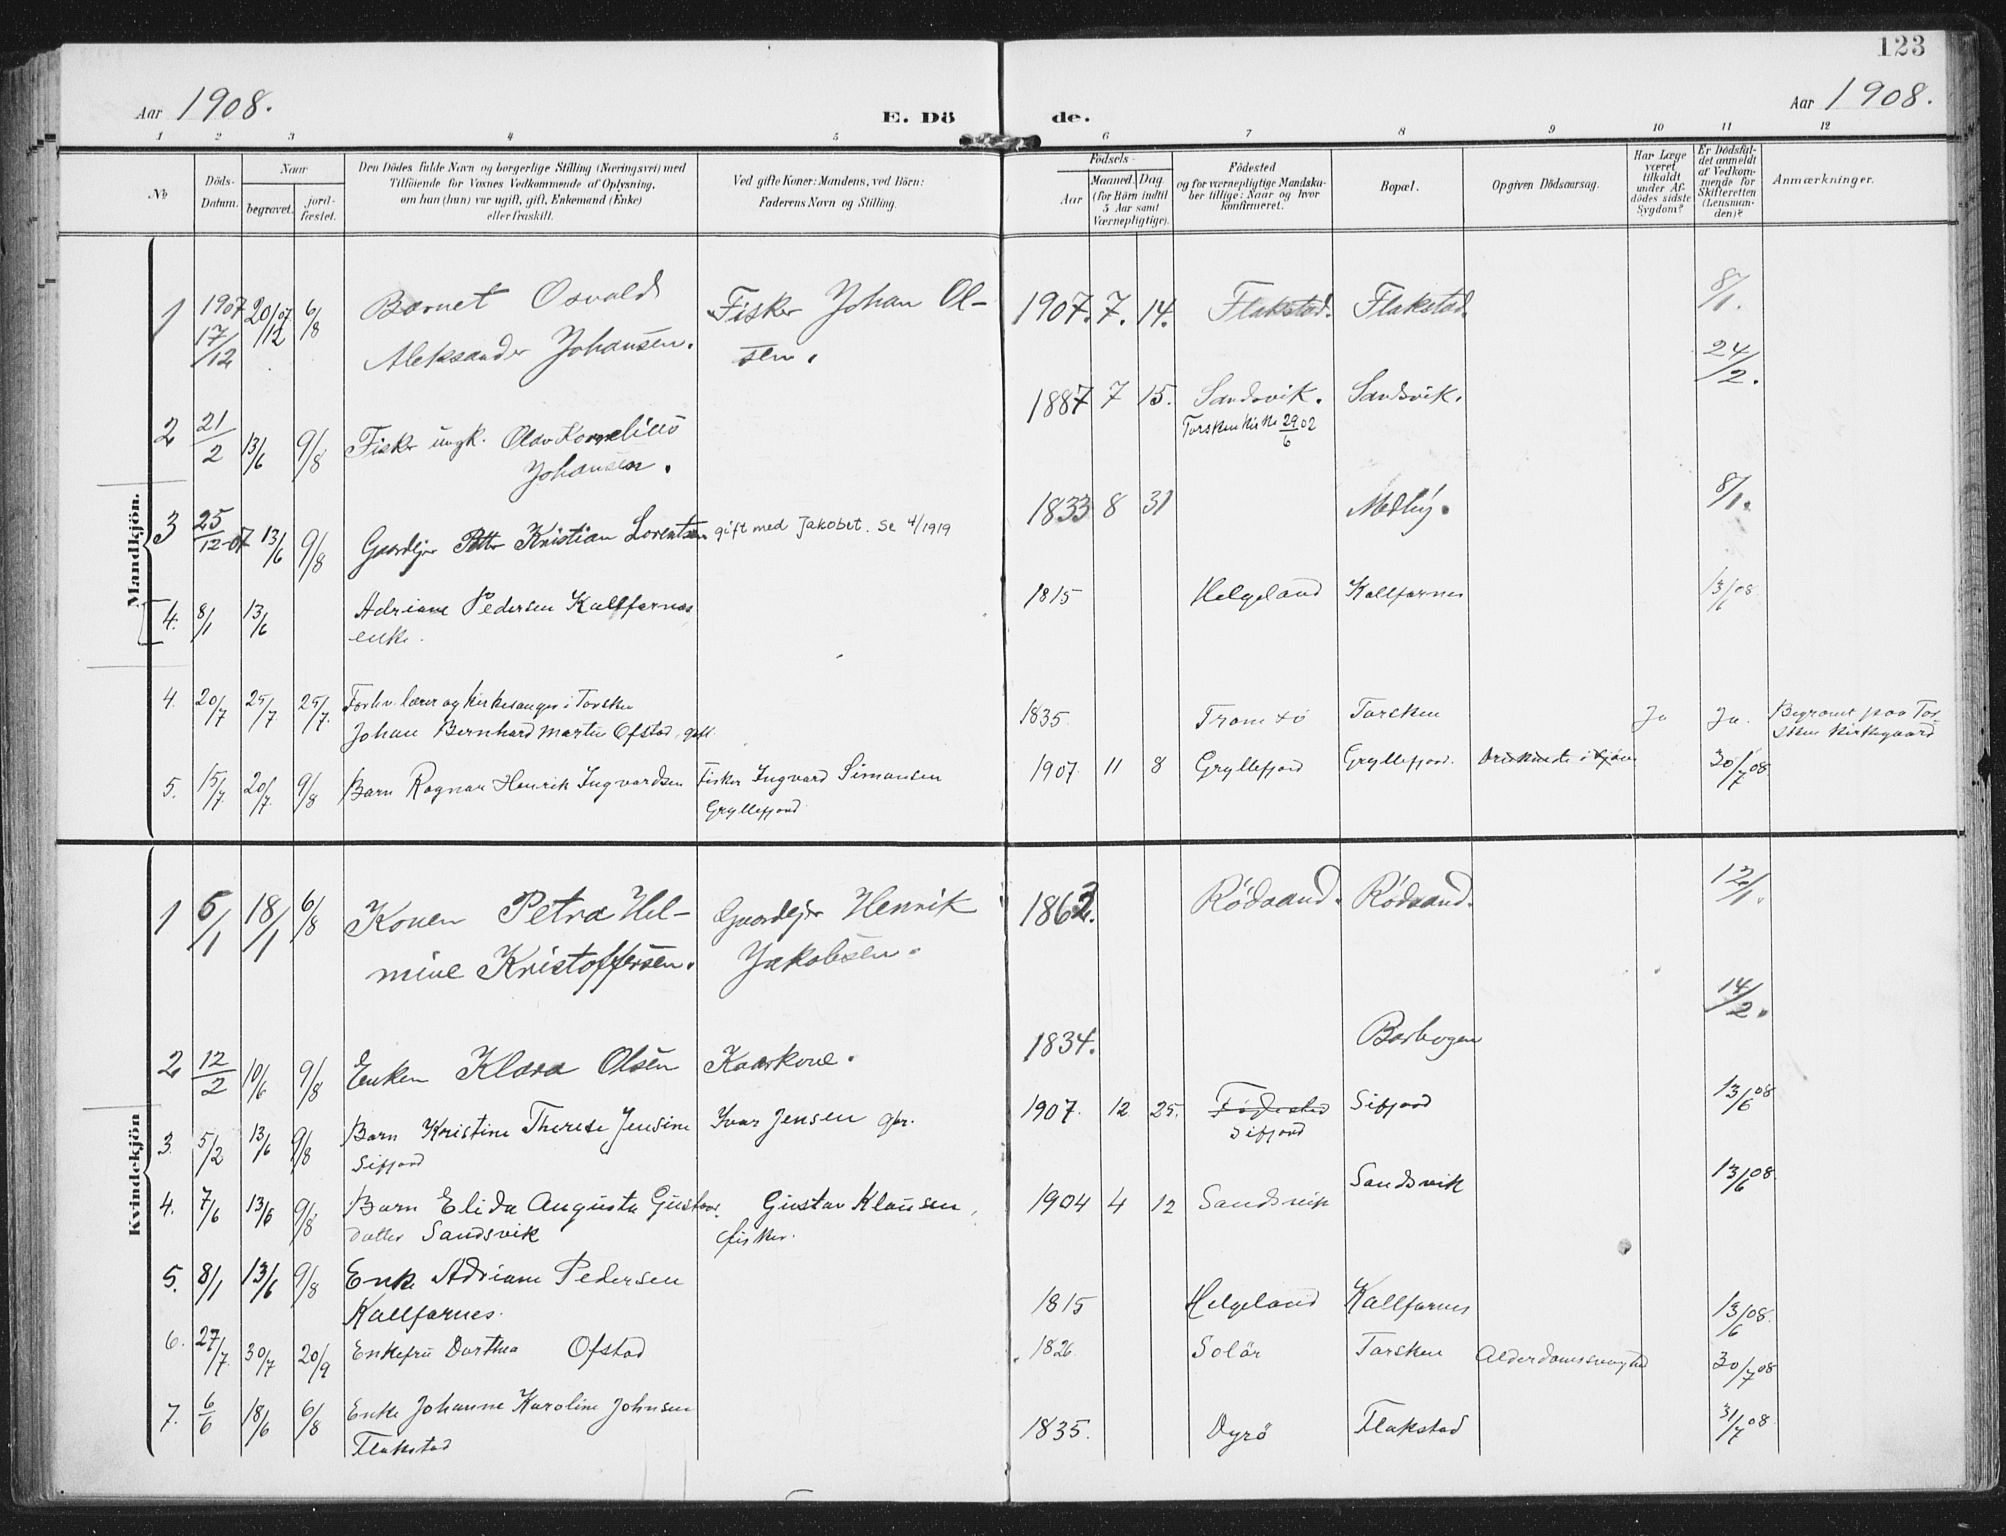 123
Aar 1908.
E. Dö
de.
Aar 1908.
1 2 3 4 5 6 7 8 9 10 11 12
No
Döds-
Datum.
Naar
begravet.
jord-
fæstet.
Den Dödes fulde Navn og borgerlige Stilling (Næringsvei) med
Tilföiende for Voxnes Vedkommende af Oplysning,
om han (hun) var ugift, gift, Enkemand (Enke)
eller fraskilt.
Ved gifte Koner: Mandens, ved Börn:
Faderens Navn og Stilling.
Födsels-
Aar
Maaned.
Dag
(for Börn indtil
5 Aar samt
Værnepligtige).
Födested
og for værnepligtige Mandska-
ber tillige: Naar og hvor
konfirmeret.
Bopæl.
Opgiven Dödsaarsag.
Har Læge
været
tilkaldt
under Af-
dödes sidste
Sygdom?
Er Dödsfal-
det anmeldt
af Vedkom-
mende for
Skifteretten
(Lensman-
den)?
Anmærkninger.
Mandkjön.
1 1907 17/12 20/12 07 6/8 Barnet Osvald Fisker Johan Ol- 1907. 7. 14. Flakstad. Flakstad. 8/1.
Aleksander Johansen. sen.
2 21/2 13/6 9/8 Fisker ungk. Olav Kornelius 1887 7 15. Sandsvik. Sandsvik. 24/2.
Johansen. Torsken Kirke 29/6 02
3 25/12-07 13/6 9/8 Gaardejer Petter Kristian Lorentsen gift med Jakobet. se 4/1919 1833 8 31 Medby. 8/1.
4. 8/1 13/6 Adriane Pedersen Kallfarnes 1815 Helgeland Kallfarnes 13/6 08
enke.
4. 20/7 25/7 25/7. Forhv. lærer og kirkesanger i Torsken 1835. Tromsö Torsken Ja Ja. Begravet paa Tor-
Johan Bernhard Martin Ofstad, gift. sken Kirkegaard
5. 15/7. 20/7. 9/8 Barn Ragnar Henrik Ingvardsen Fisker Ingvard Simonsen 1907 11 8 Gryllefjord Gryllefjord. Druknete i Sjöen 30/7 08
Gryllefjord
Kvindekjön
1 6/1 18/1 6/8 Konen Petra Hel- Gaardejer Henrik 1862. Rödsand. Rödsand. 12/1.
mine Kristoffersen. Jakobsen.
2 12/2 10/6 9/8 Enken Klara Olsen Kaarkone. 1834. Borhogen 14/2.
3. 5/2 13/6 9/8 Barn Kristine Therese Jensine Ivar Jensen gbr. 1907. 12 25. Födested Sifjord 13/6 08
Sifjord Sifjord
4. 7/6 13/6 9/8 Barn Elida Augusta Gustav. Gustav Klausen, 1904 4 12 Sandsvik Sandsvik 13/6 08
datter Sandsvik fisker.
5. 8/1 13/6 9/8 Enke Adriane Pedersen 1815 Helgeland Kallfarnes 13/6 08.
Kallfarnes.
6. 27/7. 30/7 20/9 Enkefru Dorthea Ofstad 1826 Solör Torsken Alderdomssvaghed 30/7 08
7. 6/6 18/6 6/8 Enke Johanne Karoline Johnsen 1835. Dyrö Flakstad 31/7 08
Flakstad